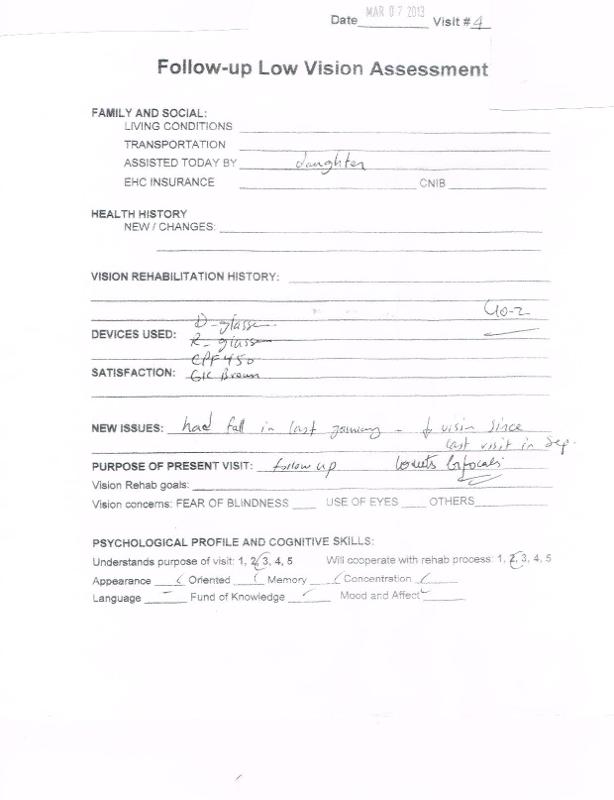 Date MAR 07 2013 Visit # 4
Follow-up Low Vision Assessment
FAMILY AND SOCIAL:
LIVING CONDITIONS
TRANSPORTATION
ASSISTED TODAY BY daughter
EHC INSURANCE CNIB
HEALTH HISTORY
NEW / CHANGES:
VISION REHABILITATION HISTORY:
D-glasses
DEVICES USED: R-glasses
CPF 450
SATISFACTION: GK Brown
NEW ISSUES: had fall in last January - ↓ vision since
last visit in Sep.
PURPOSE OF PRESENT VISIT: follow up wants bifocals
Vision Rehab goals:
Vision concerns: FEAR OF BLINDNESS ____ USE OF EYES ____ OTHERS
PSYCHOLOGICAL PROFILE AND COGNITIVE SKILLS:
Understands purpose of visit: 1, 2, 3, 4, 5 Will cooperate with rehab process: 1, 2, 3, 4, 5
Appearance ✓ Oriented ✓ Memory ✓ Concentration ✓
Language – Fund of Knowledge ✓ Mood and Affect ✓